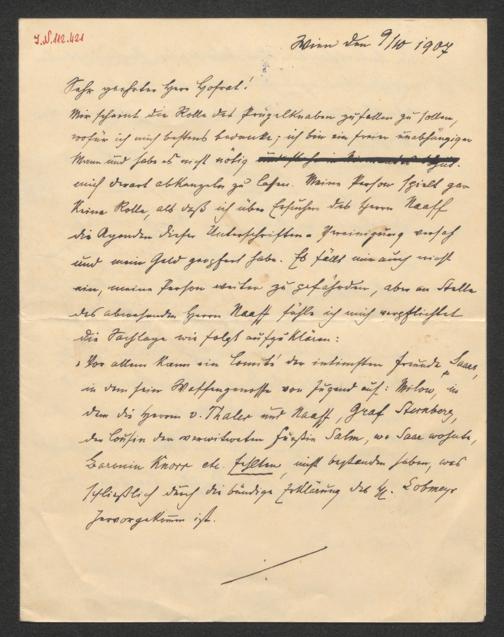 I.N. 112.421
Wien den 9/10 1907
Sehr geehrter Herr Hofrat!
Mir scheint die Rolle des Prügelknaben zufallen zu sollen,
wofür ich mich bestens bedanke; ich bin ein freier unabhängiger
Mann und habe es nicht nötig
mich derart abkanzeln zu lassen. Meine Person spielt gar
keine Rolle, als daß ich über Ersuchen des Herrn Naaff
die Agenden dieser Unterschriften-Vereinigung versah
und mein Geld geopfert habe. Es fällt mir auch nicht
ein, meine Person weiter zu gefährden, aber an Stelle
des abwesenden Herrn Naaff fühle ich mich verpflichtet
die Sachlage wie folgt aufzuklären:
Vor allem kann ein Comité der intimsten Freunde Saars,
in dem sein Waffengenosse von Jugend auf: Milow, in
dem die Herren v. Thaler und Naaff, Graf Sternberg,
der Cousin der verwitweten Fürstin Salm, wo Saar wohnte,
Baronin Knorr etc. fehlten, nicht bestanden haben, was
schließlich durch die bündige Erklärung des H. Lobmeyr
hervorgekommen ist.